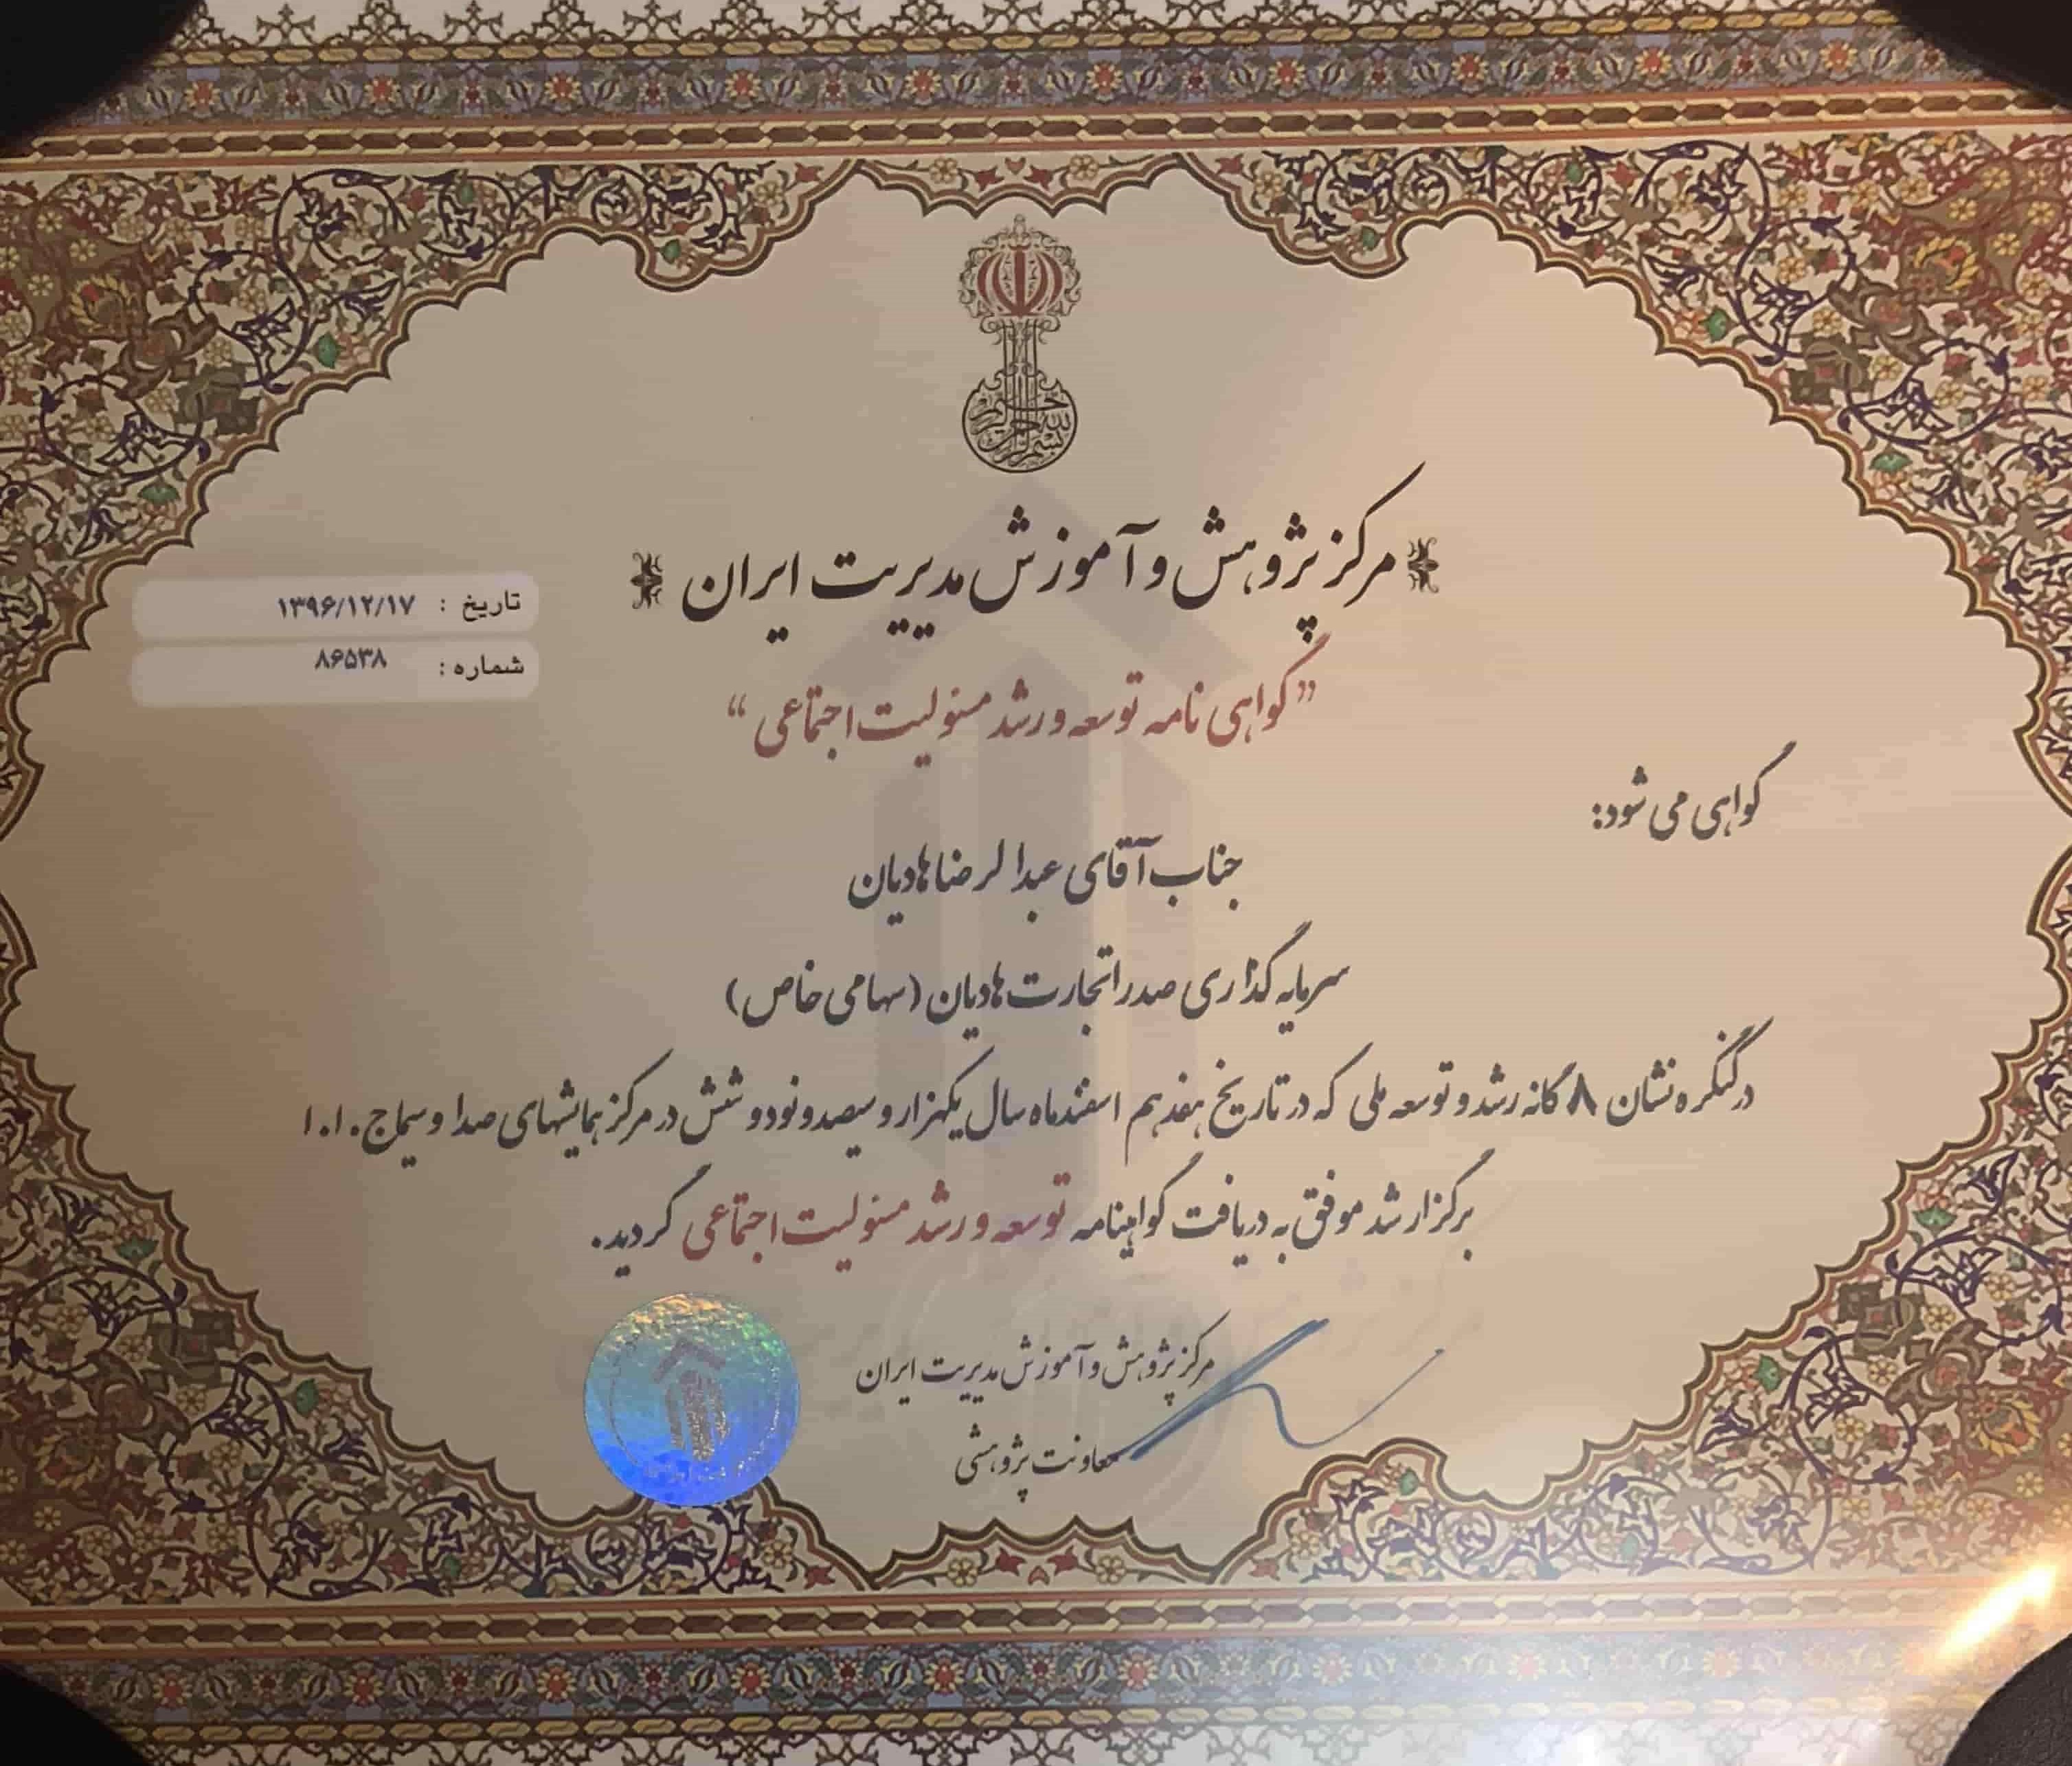 بسم الله الرحمن الرحیم
مرکز پژوهش و آموزش مدیریت ایران
تاریخ : ۱۳۹۶/۱۲/۱۷
شماره : ۸۶۵۳۸
”گواهی نامه توسعه و رشد مسئولیت اجتماعی“
گواهی می شود:
جناب آقای عبدالرضا هادیان
سرمایه گذاری صدرا تجارت هادیان (سهامی خاص)
در کنگره نشان ۸ گانه رشد و توسعه ملی که در تاریخ هفدهم اسفندماه سال یکهزار و سیصد و نود و شش در مرکز همایشهای صدا و سیما ج.ا.ا
برگزار شد موفق به دریافت گواهینامه توسعه و رشد مسئولیت اجتماعی گردید.
مرکز پژوهش و آموزش مدیریت ایران
معاونت پژوهشی